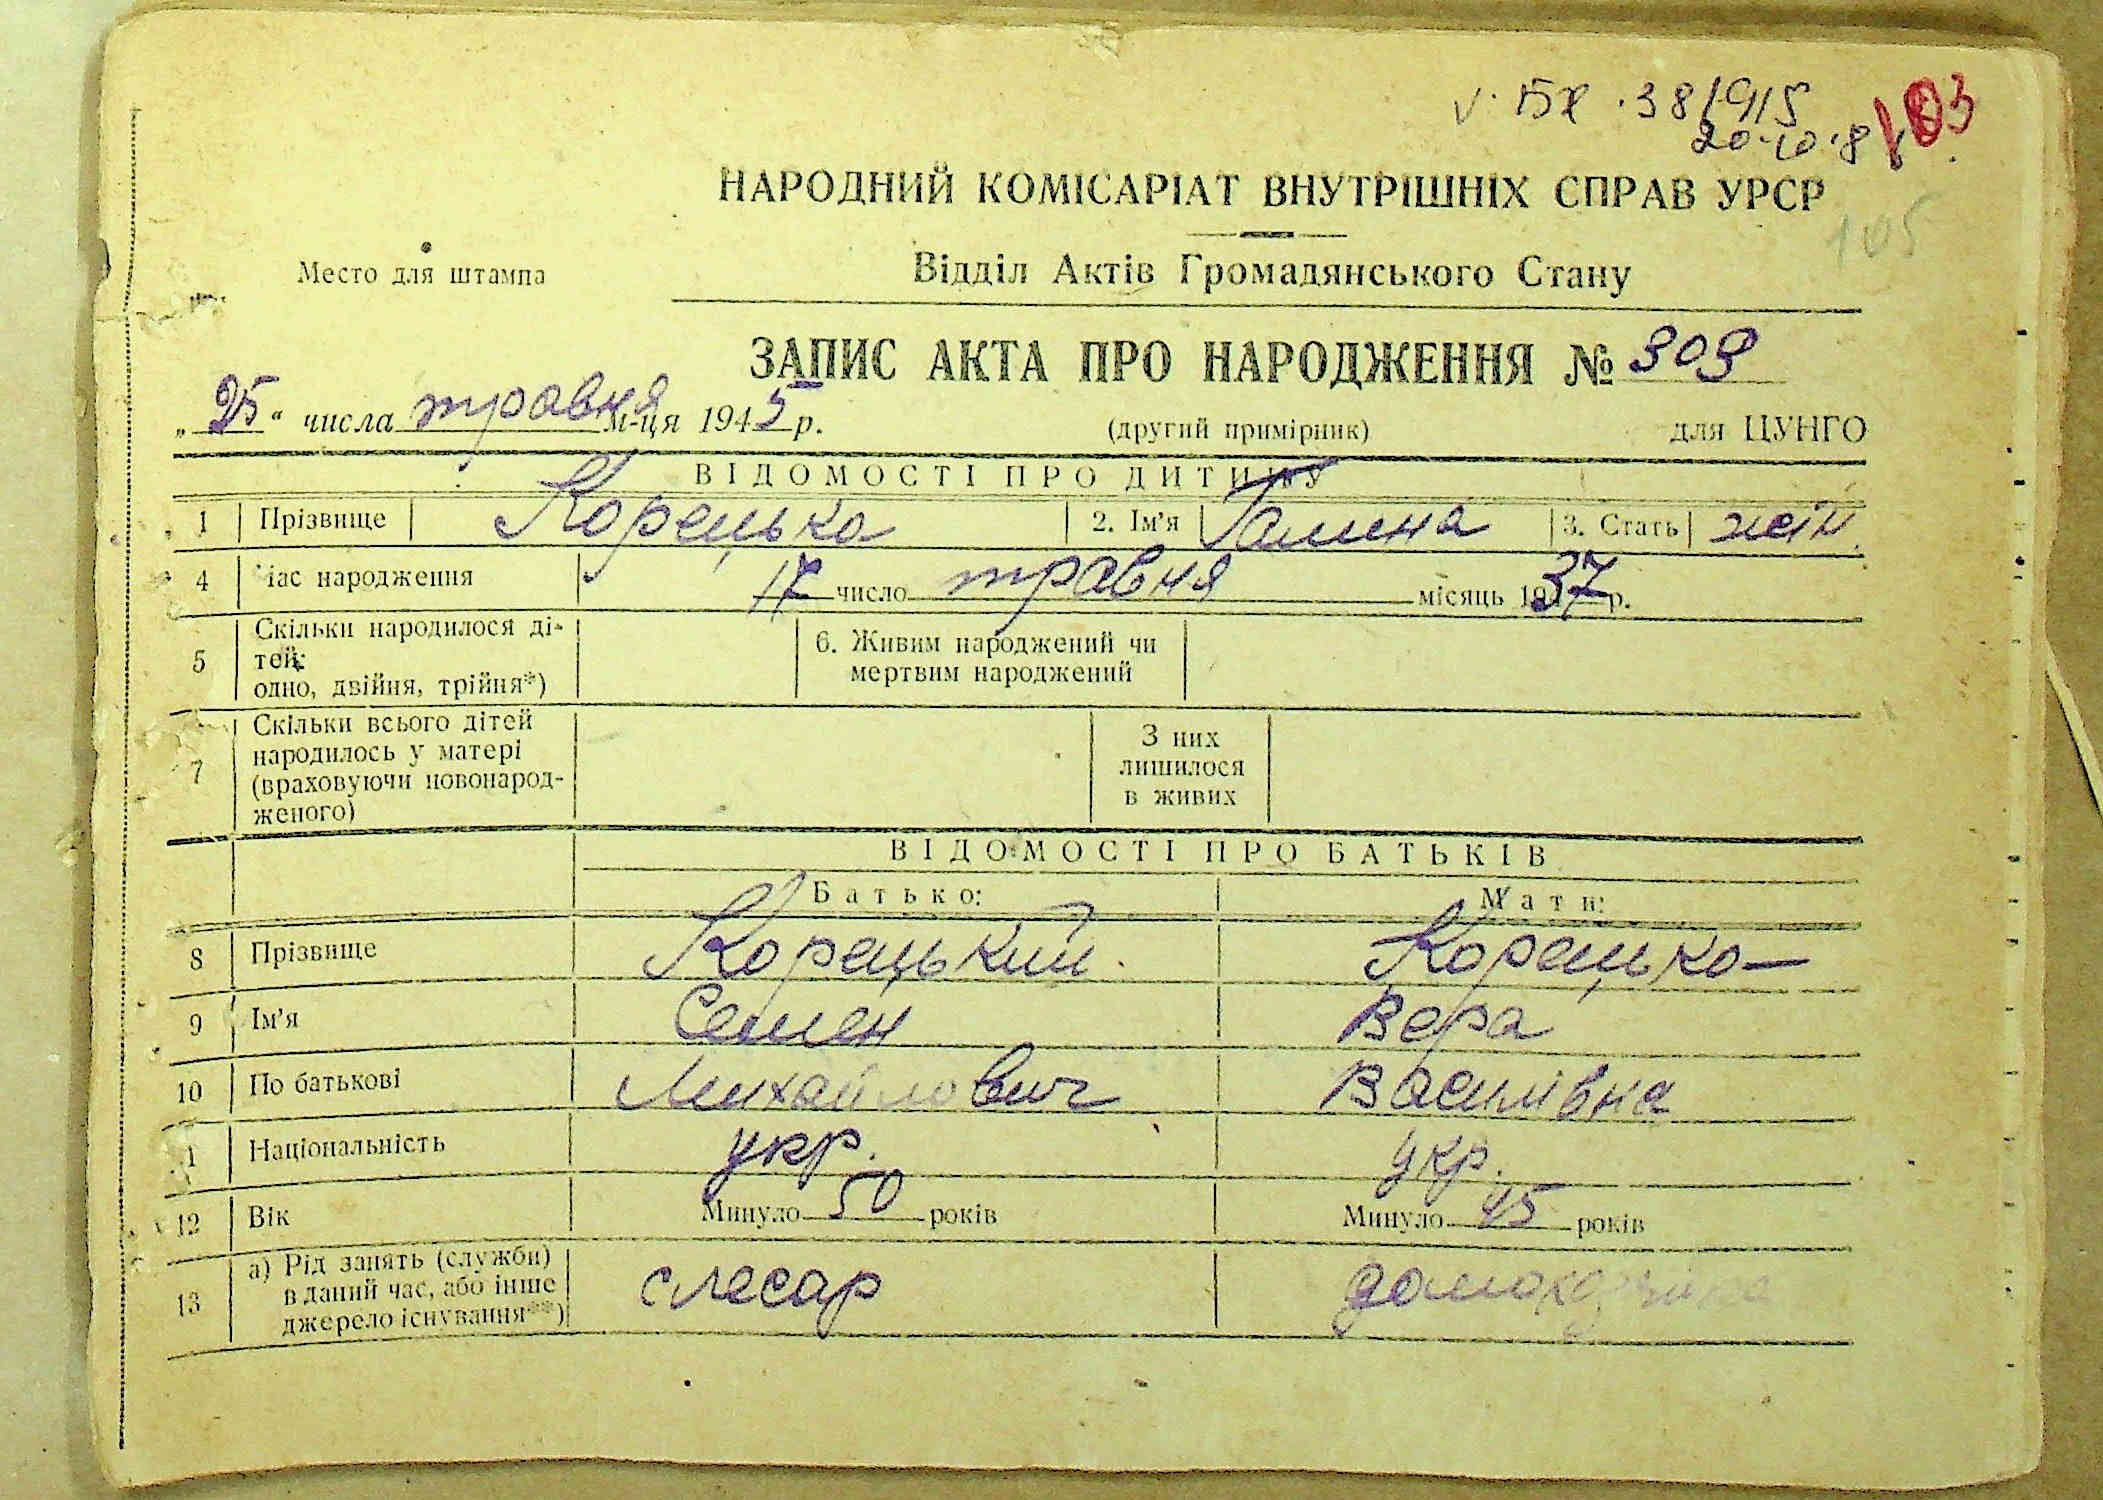 V. БХ . 38/915
103
20.10.8
НАРОДНИЙ КОМІСАРІАТ ВНУТРІШНІХ СПРАВ УРСР
105
Место для штампа
Відділ Актів Громадянського Стану
ЗАПИС АКТА ПРО НАРОДЖЕННЯ № 309
„25“ числа травня м-ця 1945 р. (другий примірник) для ЦУНГО
ВІДОМОСТІ ПРО ДИТИНУ
1 Прізвище Корецька 2. Ім'я Галина 3. Стать жін.
4 Час народження 17 число травня місяць 1937 р.
5 Скільки народилося ді-
тей:
одно, двійня, трійня*)
6. Живим народжений чи
мертвим народжений
7 Скільки всього дітей
народилось у матері
(враховуючи новонарод-
женого)
З них
лишилося
в живих
ВІДОМОСТІ ПРО БАТЬКІВ
Батько: Мати:
8 Прізвище Корецький Корецька
9 Ім'я Семен Вера
10 По батькові Михайлович Василівна
11 Національність укр. укр.
12 Вік Минуло 50 років Минуло 45 років
13 а) Рід занять (служби)
в даний час, або інше
джерело існування**)
слесар